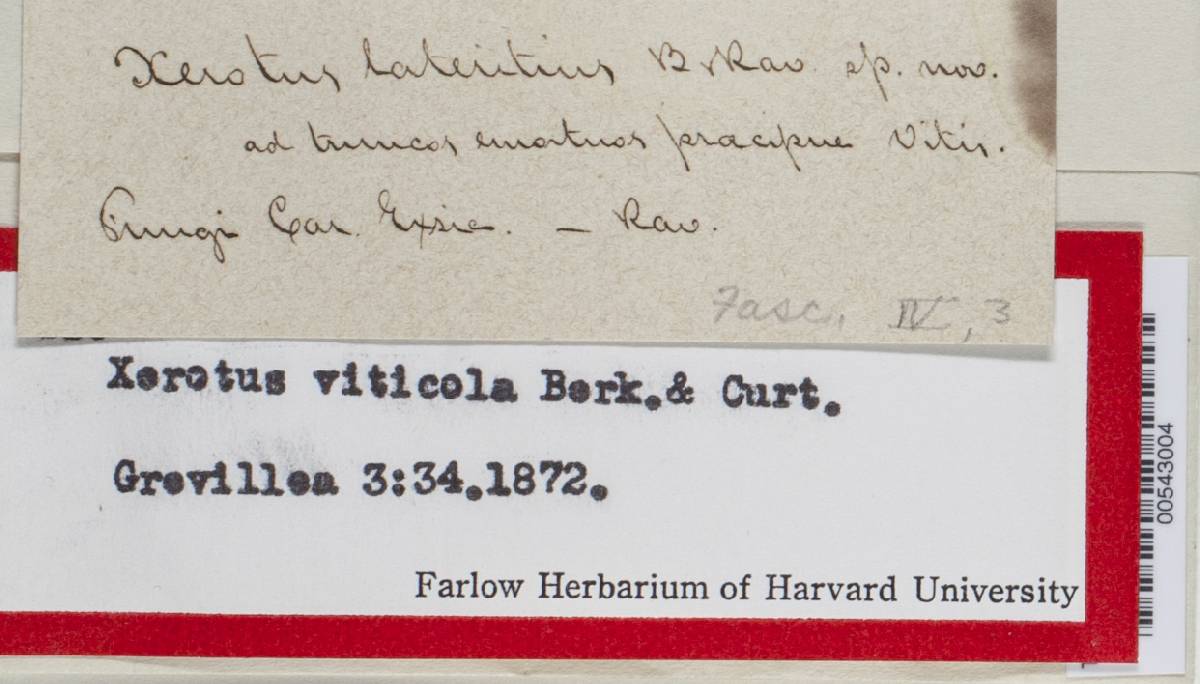 Xerotus lateritius B & Rav. sp. nov.
ad truncos emortuos præcipue Vitis.
Fungi Car. Exsic. — Rav.
Fasc. IV, 3
Xerotus viticola Berk.& Curt.
Grevillea 3:34.1872.
Farlow Herbarium of Harvard University
00543004